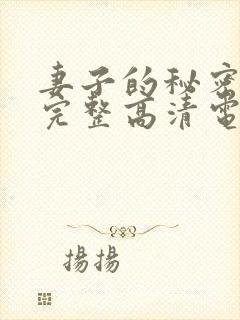 妻子的秘密
完整高清電
揚揚